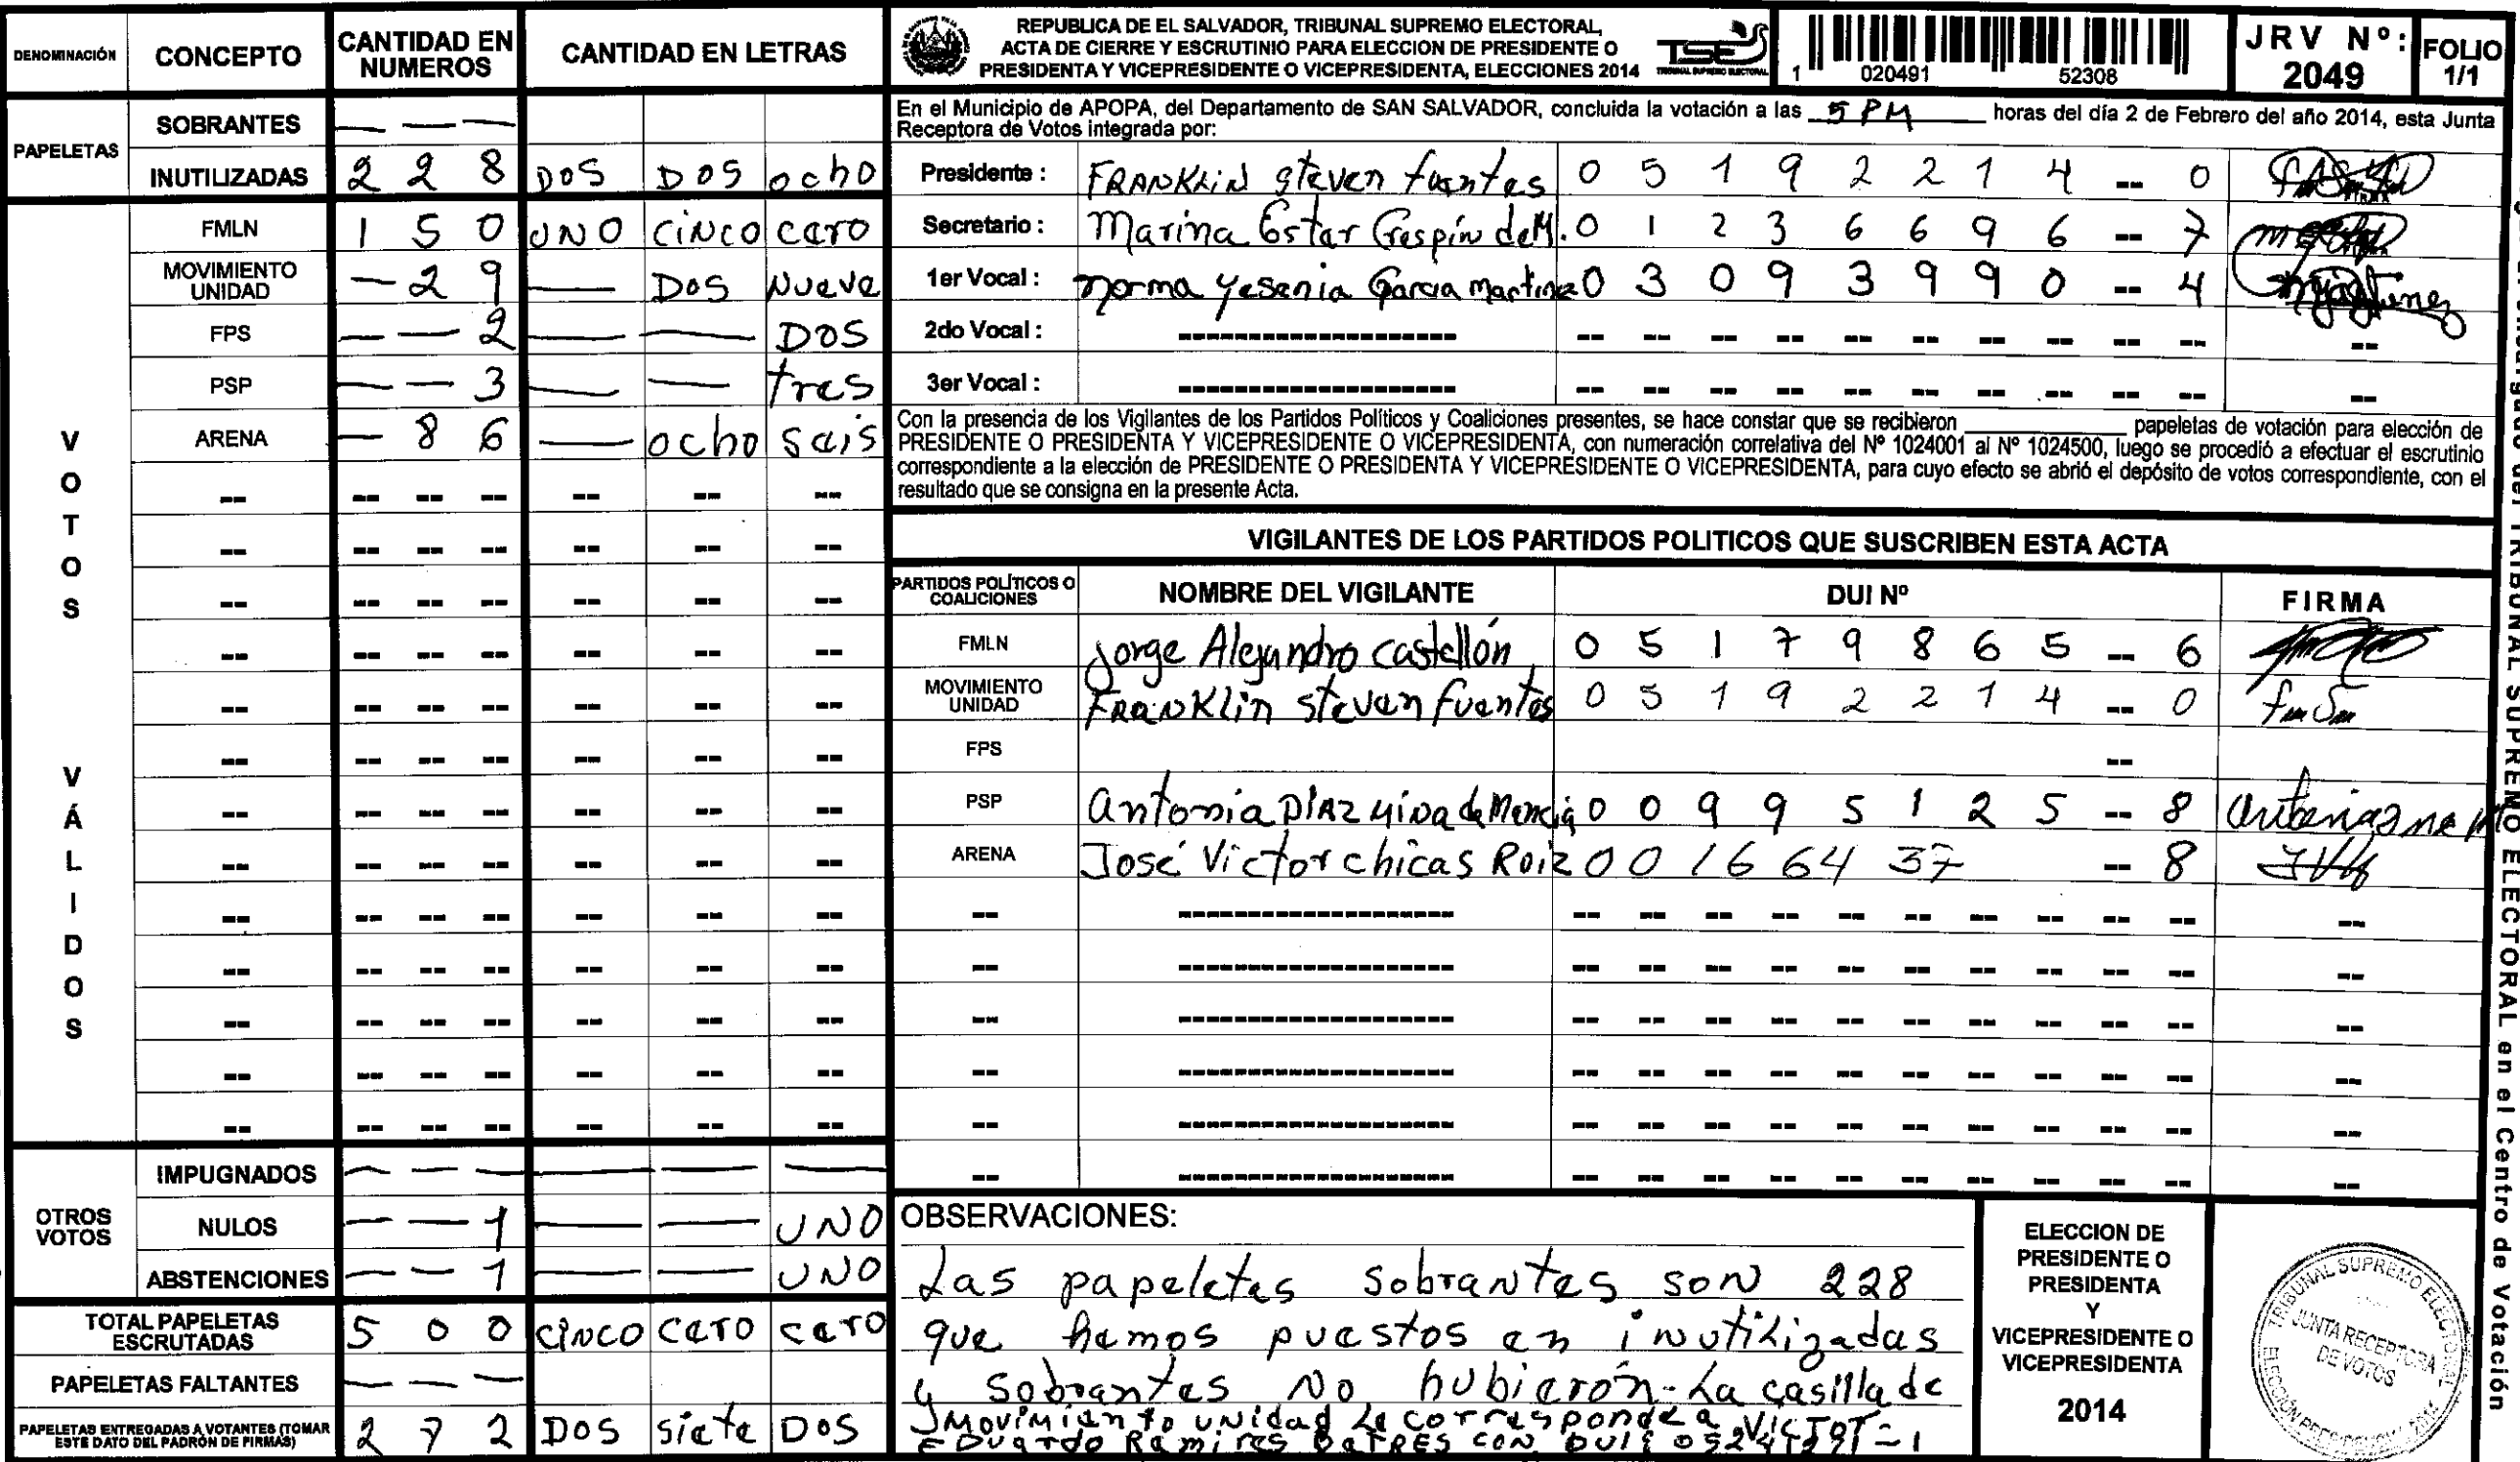 DENOMINACIÓN CONCEPTO CANTIDAD EN NUMEROS CANTIDAD EN LETRAS
PAPELETAS
SOBRANTES — — —
INUTILIZADAS 2 2 8 DOS DOS ocho
VOTOS VÁLIDOS
FMLN 1 5 0 UNO CINCO cero
MOVIMIENTO UNIDAD — 2 9 — DOS Nueve
FPS — — 2 — — DOS
PSP — — 3 — — tres
ARENA — 8 6 — ocho seis
-- -- -- -- -- -- --
-- -- -- -- -- -- --
-- -- -- -- -- -- --
-- -- -- -- -- -- --
-- -- -- -- -- -- --
-- -- -- -- -- -- --
-- -- -- -- -- -- --
-- -- -- -- -- -- --
-- -- -- -- -- -- --
-- -- -- -- -- -- --
-- -- -- -- -- -- --
-- -- -- -- -- -- --
-- -- -- -- -- -- --
OTROS VOTOS
IMPUGNADOS — — — — — —
NULOS — — 1 — — UNO
ABSTENCIONES — — 1 — — UNO
TOTAL PAPELETAS ESCRUTADAS 5 0 0 CINCO cero cero
PAPELETAS FALTANTES — — —
PAPELETAS ENTREGADAS A VOTANTES (TOMAR ESTE DATO DEL PADRÓN DE FIRMAS) 2 7 2 DOS siete DOS
REPUBLICA DE EL SALVADOR, TRIBUNAL SUPREMO ELECTORAL,
ACTA DE CIERRE Y ESCRUTINIO PARA ELECCION DE PRESIDENTE O
PRESIDENTA Y VICEPRESIDENTE O VICEPRESIDENTA, ELECCIONES 2014
TSE
TRIBUNAL SUPREMO ELECTORAL
1 020491 52308
JRV Nº: 2049
FOLIO 1/1
En el Municipio de APOPA, del Departamento de SAN SALVADOR, concluida la votación a las 5 PM horas del día 2 de Febrero del año 2014, esta Junta
Receptora de Votos integrada por:
Presidente : FRANKLIN steven fuentes 0 5 1 9 2 2 1 4 -- 0
Secretario : Marina Ester Crespín de M. 0 1 2 3 6 6 9 6 -- 7
1er Vocal : norma yesenia Garcia martinez 0 3 0 9 3 9 9 0 -- 4
2do Vocal : -------------------- -- -- -- -- -- -- -- -- -- -- --
3er Vocal : -------------------- -- -- -- -- -- -- -- -- -- -- --
Con la presencia de los Vigilantes de los Partidos Políticos y Coaliciones presentes, se hace constar que se recibieron ________ papeletas de votación para elección de
PRESIDENTE O PRESIDENTA Y VICEPRESIDENTE O VICEPRESIDENTA, con numeración correlativa del Nº 1024001 al Nº 1024500, luego se procedió a efectuar el escrutinio
correspondiente a la elección de PRESIDENTE O PRESIDENTA Y VICEPRESIDENTE O VICEPRESIDENTA, para cuyo efecto se abrió el depósito de votos correspondiente, con el
resultado que se consigna en la presente Acta.
VIGILANTES DE LOS PARTIDOS POLITICOS QUE SUSCRIBEN ESTA ACTA
PARTIDOS POLÍTICOS O COALICIONES NOMBRE DEL VIGILANTE DUI Nº FIRMA
FMLN Jorge Alejandro castellón 0 5 1 7 9 8 6 5 -- 6
MOVIMIENTO UNIDAD FRANKlin steven fuentes 0 5 1 9 2 2 1 4 -- 0
FPS --
PSP antonia DIAZ de Mencía 0 0 9 9 5 1 2 5 -- 8
ARENA José Victor chicas Ruiz 0 0 1 6 6 4 3 7 -- 8
-- -------------------- -- -- -- -- -- -- -- -- -- -- --
-- -------------------- -- -- -- -- -- -- -- -- -- -- --
-- -------------------- -- -- -- -- -- -- -- -- -- -- --
-- -------------------- -- -- -- -- -- -- -- -- -- -- --
-- -------------------- -- -- -- -- -- -- -- -- -- -- --
-- -------------------- -- -- -- -- -- -- -- -- -- -- --
OBSERVACIONES:
Las papeletas sobrantes son 228
que hemos puestos en inutilizadas
y sobrantes No hubieron - La casilla de
Movimiento unidad le corresponde a VICTOR
EDUARDO Ramires BATRES CON DUI
ELECCION DE
PRESIDENTE O
PRESIDENTA
Y
VICEPRESIDENTE O
VICEPRESIDENTA
2014
TRIBUNAL SUPREMO ELECTORAL
JUNTA RECEPTORA
DE VOTOS
del TRIBUNAL SUPREMO ELECTORAL en el Centro de Votación